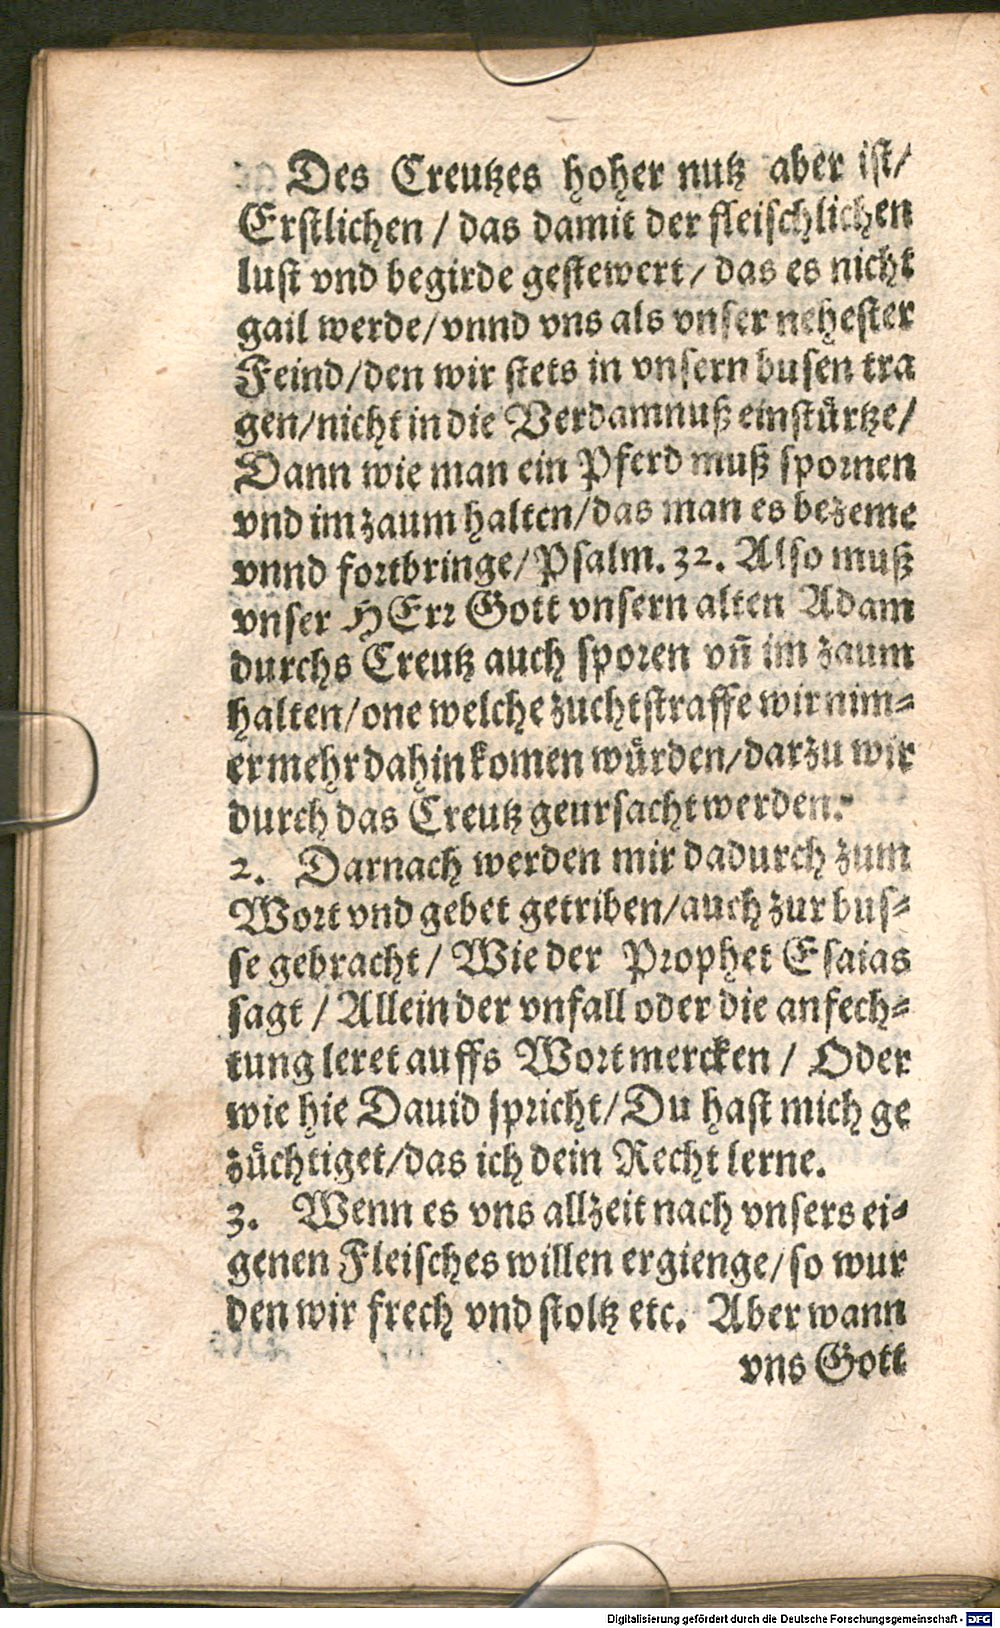 Des Creutzes hoher nutz aber ist/
Erstlichen / das damit der fleischlichen
lust vnd begirde gestewert/ das es nicht
gail werde/vnnd vns als vnser nehester
Feind/den wir stets in vnsern busen tra
gen/nicht in die Verdamnuß einstürtze/
Dann wie man ein Pferd muß spornen
vnd im zaum halten/das man es bezeme
vnnd fortbringe/Psalm. 32. Also muß
vnser HErr Gott vnsern alten Adam
durchs Creutz auch sporen vn̄ im zaum
halten/one welche zuchtstraffe wir nim⸗
ermehr dahin komen würden/darzu wir
durch das Creutz geursacht werden.
2. Darnach werden mir dadurch zum
Wort vnd gebet getriben/auch zur bus⸗
se gebracht/ Wie der Prophet Esaias
sagt / Allein der vnfall oder die anfech⸗
tung leret auffs Wort mercken / Oder
wie hie Dauid spricht/Du hast mich ge
züchtiget/das ich dein Recht lerne.
3. Wenn es vns allzeit nach vnsers ei⸗
genen Fleisches willen ergienge/so wur
den wir frech vnd stoltz etc. Aber wann
vns Gott
Digitalisierung gefördert durch die Deutsche Forschungsgemeinschaft - DFG